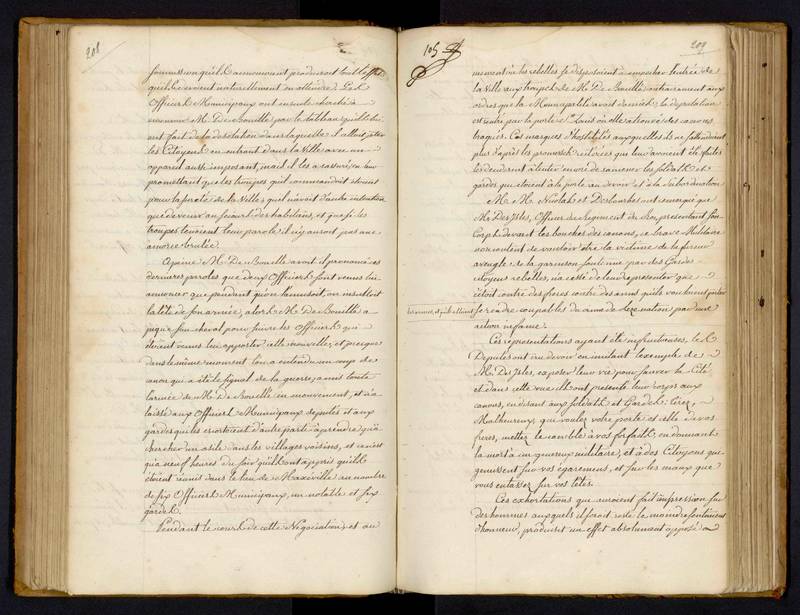 208
soumission qu'ils annoncoient produiroit tout l'effet
qu'ils devoient naturellement en attendre. Les
Officiers Municipaux ont ensuite cherché à
M. De Bouillé par le tableau qu'ils lui
ont fait de la désolation dans laquelle il alloit jetter
les Citoyens en entrant dans la Ville avec un
appareil aussi imposant, mais il les a rassuré en leur
promettant que les troupes qu'il commandoit étoient
pour la sureté de la Ville, qu'il n'avoit d'autre intention
que de venir au secours des habitans, et que si les
troupes tenoient leur parole il n'y auroit pas une
amorce brulée.
Apeine M. De Bouillé avoit il prononcé ces
dernieres paroles que deux Officiers sont venus lui
annoncer que pendant qu'on l'amusoit, on insultoit
la tête de son armée, alors M. De Bouillé a
piqué son cheval pour suivre les Officiers qui
étoient venus lui apporter cette nouvelle, et presque
dans le même moment l'on a entendu un coup de
canon qui a été le signal de la guerre, a mis toute
l'armée de M. De Bouillé en mouvement, et a
laissé aux Officiers Municipaux deputés et aux
gardes qui les escortoient d'autre parti à prendre qu'à
chercher un asile dans les villages voisins, et ce n'est
qu'à neuf heures du soir qu'ils ont appris qu'ils
étoient réunis dans le lieu de Maxéville au nombre
de six Officiers Municipaux, un notable et six
gardes.
Pendant le cours de cette Négociation, et au
105
209
moment où les rebelles se disposoient à empêcher l'entrée de
la Ville aux troupes de M. De Bouillé contrairement aux
ordres que la Municipalité avoit donnés, la députation
est entrée par la porte St. Louis où elle a trouvé des canons
braqués. Ces marques d'hostilités auxquelles ils ne s'attendoient
plus d'après les promesses réitérées qui leur avoient été faites
les déciderent à tenter encore de ramener les Soldats et
gardes qui étoient à la porte au devoir et à la Subordination
M. M. Nicolas et Desbourbes ont remarqué que
M. Des Isles, Officier du Regiment du Roi, présentant son
Corps devant les bouches des canons, ce brave Militaire
non content de vouloir être la victime de la fureur
aveugle de la garnison soutenue par des Gardes
citoyens rebelles, n'a cessé de leur représenter que
c'étoit contre des freres contre des amis qu'ils vouloient
les armes, et qu'ils alloient se rendre coupables du crime de Leze nation par une
action infame.
Ces représentations ayant été infructueuses, les
Députés ont cru devoir en imitant l'exemple de
M. Des Isles, exposer leur vie pour sauver la Cité
et dans cette vue ils ont présenté leur corps aux
canons, en disant aux soldats et Gardes: tirez,
Malheureux, qui voulez votre perte et celle de vos
freres, mettez le comble à vos forfaits, en donnant
la mort à un genereux militaire, et à des Citoyens qui
gemissent sur vos égaremens, et sur les maux que
vous entassez sur vos têtes.
Ces exhortations qui auroient fait impression sur
des hommes auxquels il seroit resté le moindre sentiment
d'honneur, produisit un effet absolument opposé